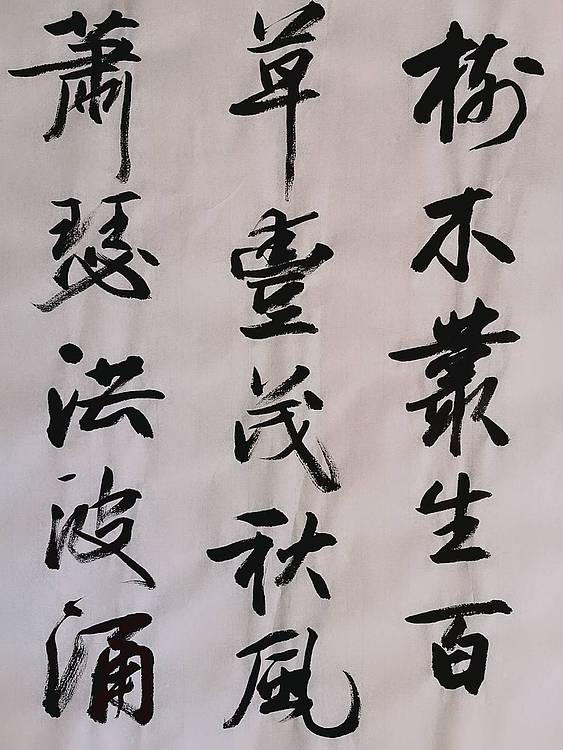 樹木叢生百
草豐茂秋風
蕭瑟洪波涌